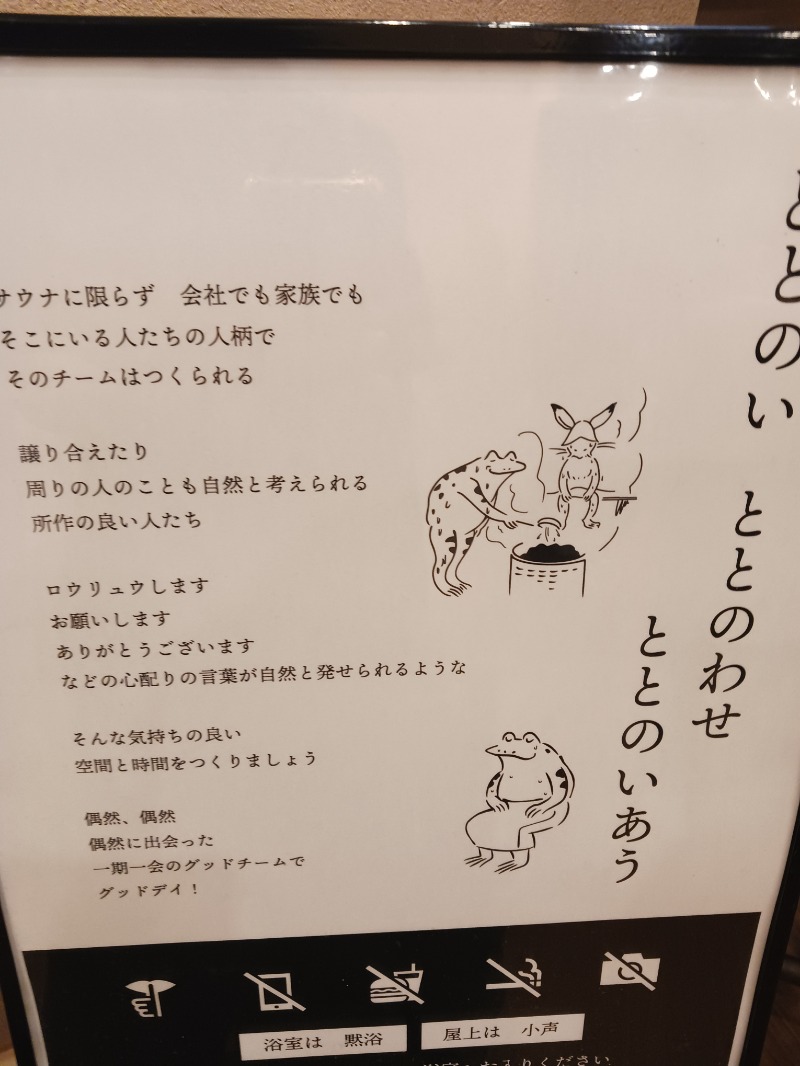 ととのい
ととのわせ
ととのいあう
サウナに限らず　会社でも家族でも
そこにいる人たちの人柄で
そのチームはつくられる
譲り合えたり
周りの人のことも自然と考えられる
所作の良い人たち
ロウリュウします
お願いします
ありがとうございます
などの心配りの言葉が自然と発せられるような
そんな気持ちの良い
空間と時間をつくりましょう
偶然、偶然
偶然に出会った
一期一会のグッドチームで
グッドデイ！
浴室は　黙浴
屋上は　小声
ください